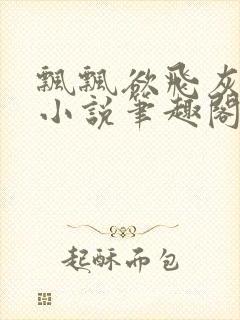 飄飄欲飛灰
小說筆趣閣
起酥而包